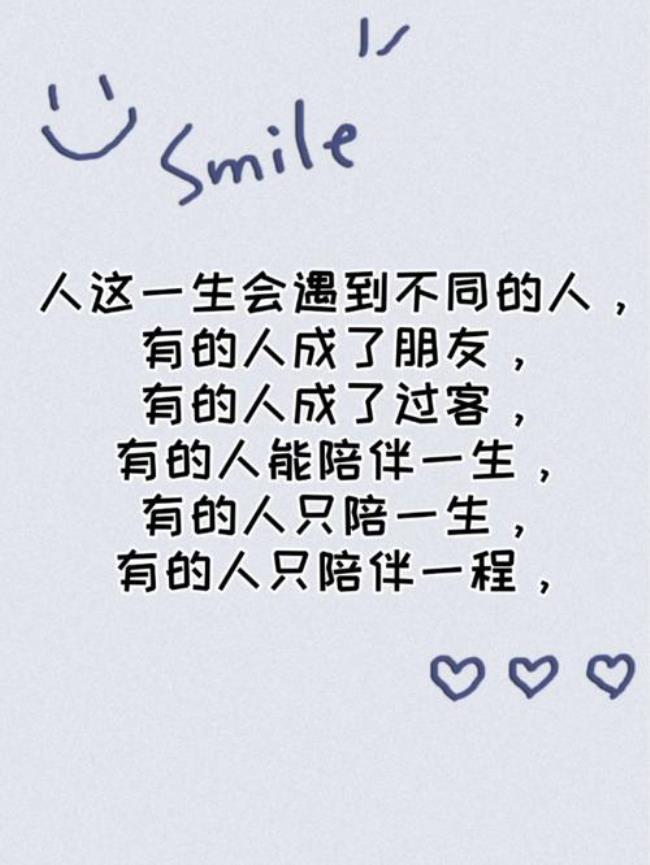 Smile
人这一生会遇到不同的人，
有的人成了朋友，
有的人成了过客，
有的人能陪伴一生，
有的人只陪一生，
有的人只陪伴一程，